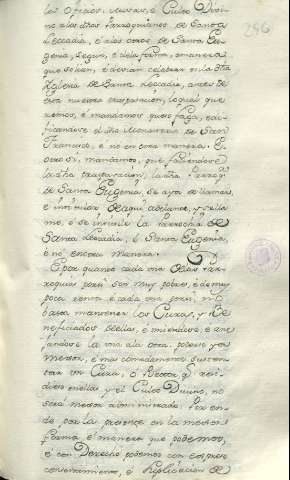 286
los oficios, missas, é Culto Divi-
no a las dhas Parroquianos de Santa
Leocadia, é a los otros de Santa Eu-
genia, segun, é de la forma, é manera
que solian, é devian celebrar en la dha
Yglesia de Santa Leocadia, antes de
esta nuestra traspasación, lo qual que
remos, é mandamos que se faga, edi-
ficandose el dho Monasterio de San
Francisco, é no en otra manera. É
otro si, mandamos, que faciendose
la dha traspasación, la dha Parroq.ª
de Santa Eugenia, se aya de llamar,
é intitular de aqui adelante, y se lla-
me, é se intitule la Parrochia de
Santa Leocadia, é Santa Eugenia,
é no en otra manera.
É por quanto cada una de las Par-
roquias por si son muy pobres, é de muy
poca renta é cada una por si, no
basta mantener los Curas, y Be-
neficiados de ellas, é uniendose, é ane-
jandose la una a la otra, podrase yo
messor, é mas comodamente susten-
tar un Cura, ó Rector q. resi-
diere en ellas y el Culto Divino, no
será messor administrado. Por en-
de por la presente en la messor
forma, é manera que podemos,
é con Derecho podemos con expreso
consentimiento, é suplicacion de